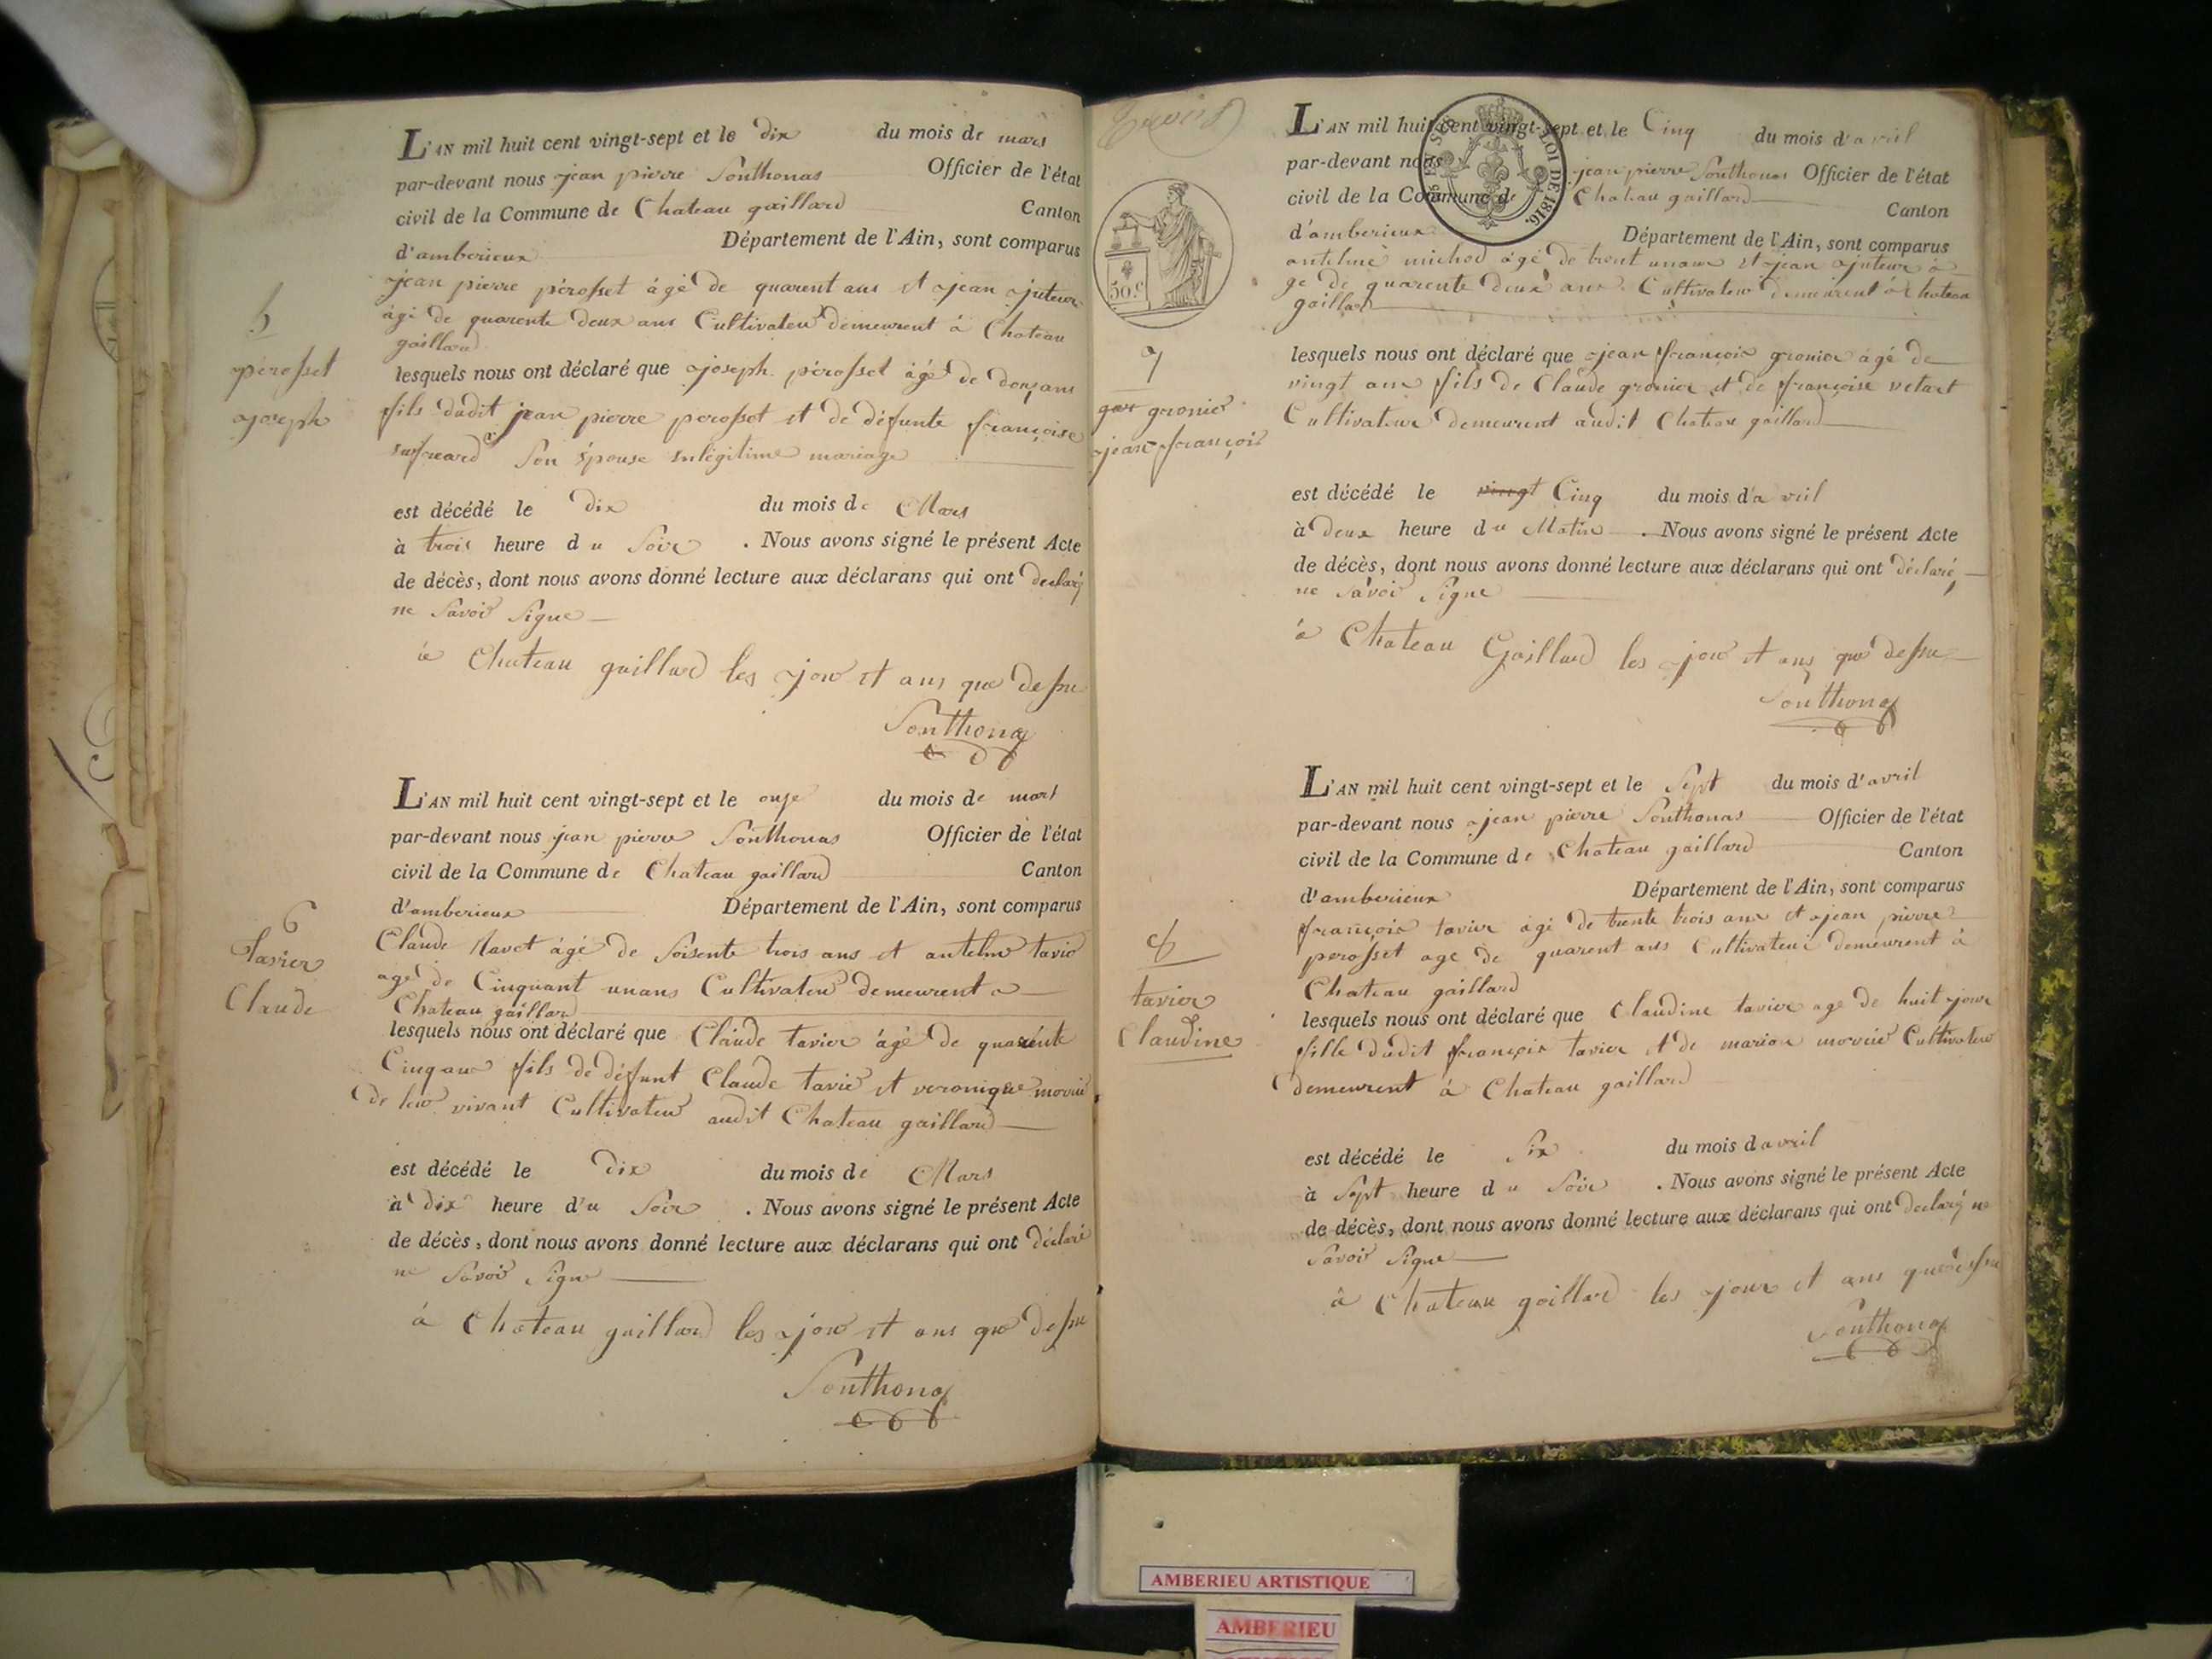 L'AN mil huit cent vingt-sept et le dix du mois de mars
par-devant nous jean pierre Sonthonas Officier de l'état
civil de la Commune de Chateau gaillard Canton
d'amberieux Département de l'Ain, sont comparus
jean pierre pérosset àgé de quarent ans et jean juteur
àgé de quarente deux ans Cultivateur demeurent à Chateau
gaillard
5
perosset
joseph
lesquels nous ont déclaré que joseph pérosset àgé de donz ans
fils dudit jean pierre perosset et de défunte françoise
son épouse enlégitime mariage
est décédé le dix du mois de Mars
à trois heure du Soir . Nous avons signé le présent Acte
de décès, dont nous avons donné lecture aux déclarans qui ont declaré
ne Savoir Signe
à Chateau gaillard les jour et ans que dessu
Sonthonas
L'AN mil huit cent vingt-sept et le onze du mois de mars
par-devant nous jean pierre Sonthonas Officier de l'état
civil de la Commune de Chateau gaillard Canton
d'amberieux Département de l'Ain, sont comparus
6
Tavier
Claude
Claude Navet àgé de Soisente trois ans et antelme tavie
age de Cinquant unans Cultivateur demeurent a
Chateau gaillard
lesquels nous ont déclaré que Claude tavier àgé de quarente
Cinq ans fils de défunt Claude tavie et veronique
de leur vivant Cultivateur audit Chateau gaillard
est décédé le dix du mois de Mars
à dix heure d'u Soir . Nous avons signé le présent Acte
de décès, dont nous avons donné lecture aux déclarans qui ont déclaré
ne Savoir Signe
à Chateau gaillard les jour et ans que dessu
Sonthonas
L'AN mil huit cent vingt-sept et le Cinq du mois d'avril
par-devant nous jean pierre Sonthonas Officier de l'état
civil de la Commune de Chateau gaillard Canton
d'amberieux Département de l'Ain, sont comparus
LOI DE 1816.
50.c
antelme michod àgé de trent unans et jean juteur à
ge de quarente deux ans Cultivateur demeurent a Chateau
gaillard
7
gronier
jean françois
lesquels nous ont déclaré que jean françois gronier àgé de
vingt ans fils de Claude gronier et de françoise vetart
Cultivateur demeurent audit Chateau gaillard
est décédé le vingt Cinq du mois d'avril
à deux heure du Matin . Nous avons signé le présent Acte
de décès, dont nous avons donné lecture aux déclarans qui ont déclaré
ne Savoir Signe
à Chateau Gaillard les jour et ans que dessu
Sonthonas
L'AN mil huit cent vingt-sept et le Sept du mois d'avril
par-devant nous jean pierre Sonthonas Officier de l'état
civil de la Commune de Chateau gaillard Canton
d'amberieux Département de l'Ain, sont comparus
8
tavier
Claudine
françois tavier àgé de trente trois ans et jean pierre
perosset age de quarent ans Cultivateur demeurent à
Chateau gaillard
lesquels nous ont déclaré que Claudine tavier age de huit jour
fille dudit françois tavier et de marian Cultivateur
demeurent à Chateau gaillard
est décédé le Six du mois davril
à Sept heure du Soir . Nous avons signé le présent Acte
de décès, dont nous avons donné lecture aux déclarans qui ont declaré ne
Savoir Signe
à Chateau gaillard les jour et ans que dessu
Sonthonas
AMBERIEU ARTISTIQUE
AMBERIEU